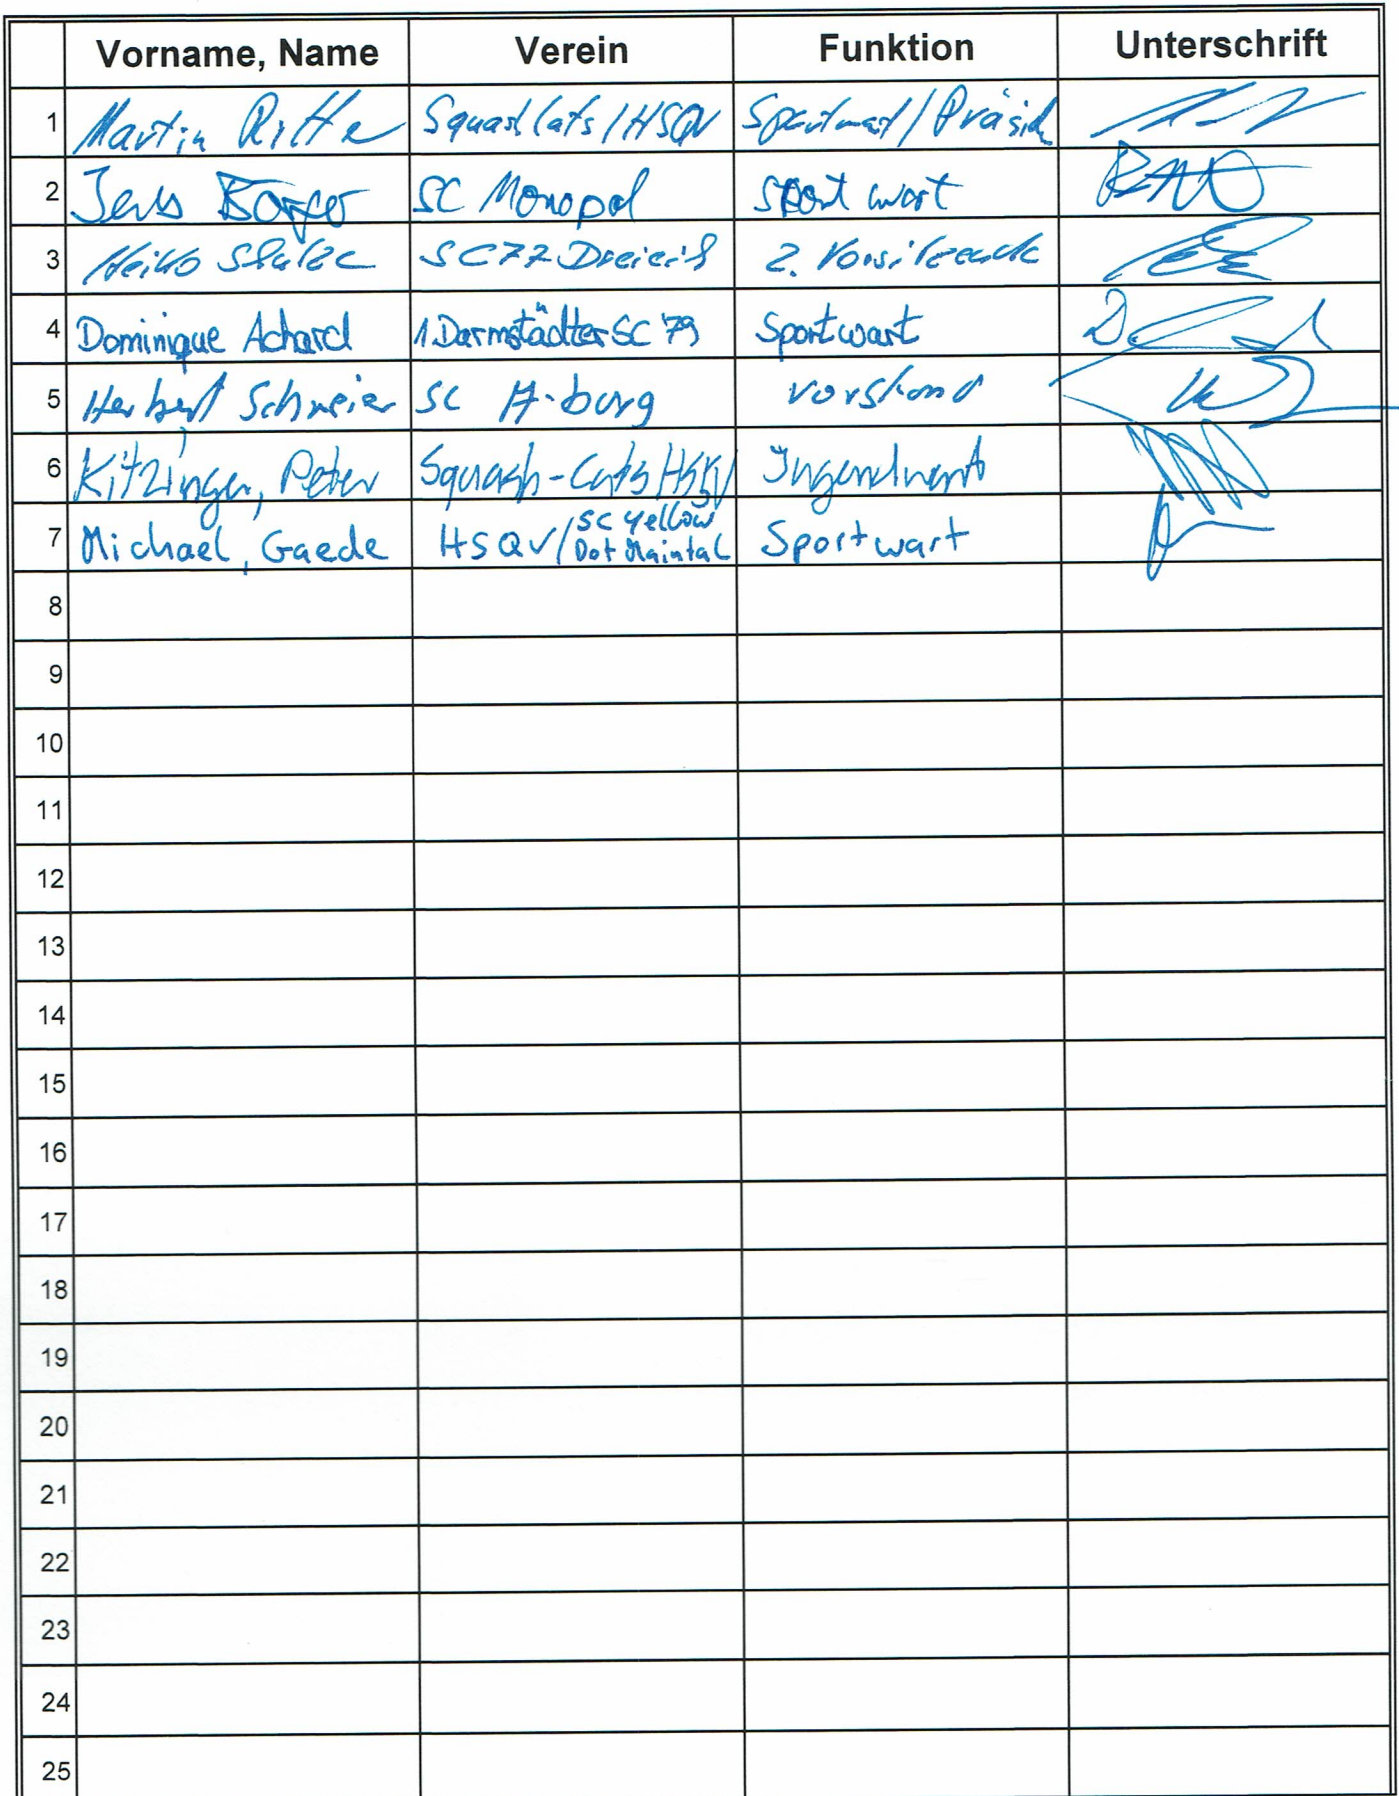 Vorname, Name Verein Funktion Unterschrift
1 Martin Ritte Squash Cats / HSQV Sportwart / Präsid
2 Jens SC Monopol Sportwart
3 Heiko SC 77 Dreieich 2. Vorsitzende
4 Dominique Achard 1. Darmstädter SC '79 Sportwart
5 Herbert Schweier SC A-burg Vorstand
6 Kitzinger, Peter Squash-Cats HSQV Jugendwart
7 Michael, Gaede HSQV/ SC Yellow Dot Maintal Sportwart
8
9
10
11
12
13
14
15
16
17
18
19
20
21
22
23
24
25